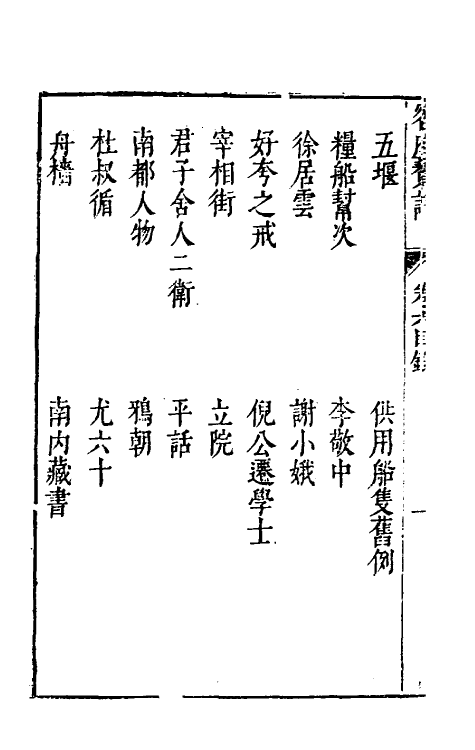 客座贅語 卷六目錄 一
五堰 供用船隻舊例
糧船幫次 李敬中
徐居雲 謝小娥
好夸之戒 倪公遷學士
宰相街 立院
君子舍人二衛 平話
南都人物 鴉朝
杜叔循 尤六十
舟檣 南內藏書